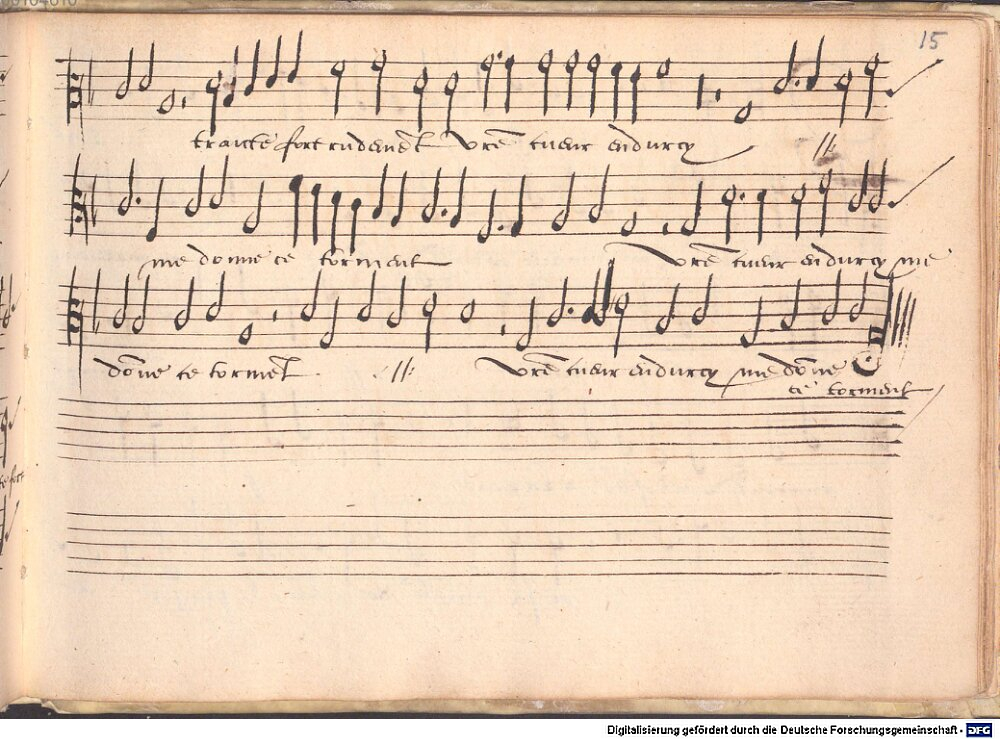 15
traicte fort rudemēt vrē cueur endurcy //
me donne ce torment vrē cueur endurcy me
dōne ce tormēt // vrē cueur endurcy me dōne
ce torment
Digitalisierung gefördert durch die Deutsche Forschungsgemeinschaft - DFG